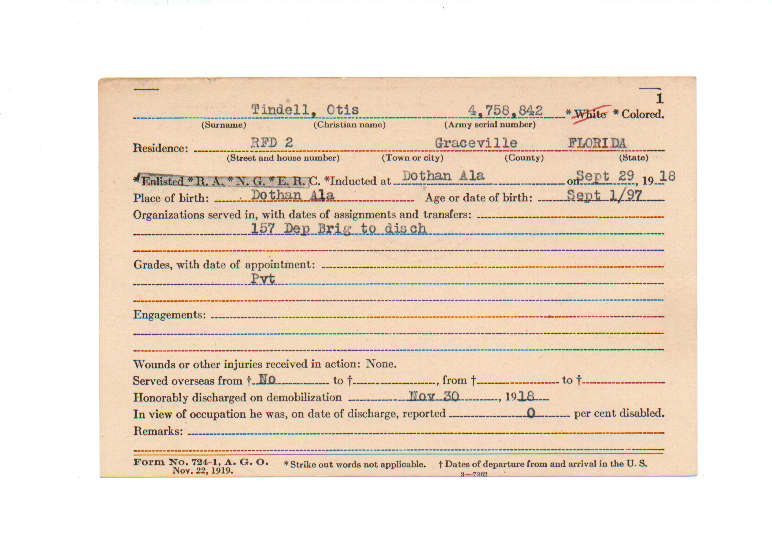 1
Tindell, Otis 4,758,842 *White *Colored.
(Surname) (Christian name) (Army serial number)
Residence: RFD 2 Graceville FLORIDA
(Street and house number) (Town or city) (County) (State)
*Enlisted *R. A. *N. G. *E. R. C. *Inducted at Dothan Ala on Sept 29, 1918
Place of birth: Dothan Ala Age or date of birth: Sept 1/97
Organizations served in, with dates of assignments and transfers:
157 Dep Brig to disch
Grades, with date of appointment:
Pvt
Engagements:
Wounds or other injuries received in action: None.
Served overseas from † No to †, from † to †
Honorably discharged on demobilization Nov 30, 1918
In view of occupation he was, on date of discharge, reported 0 per cent disabled.
Remarks:
Form No. 724-1, A. G. O. *Strike out words not applicable. † Dates of departure from and arrival in the U. S.
Nov. 22, 1919.